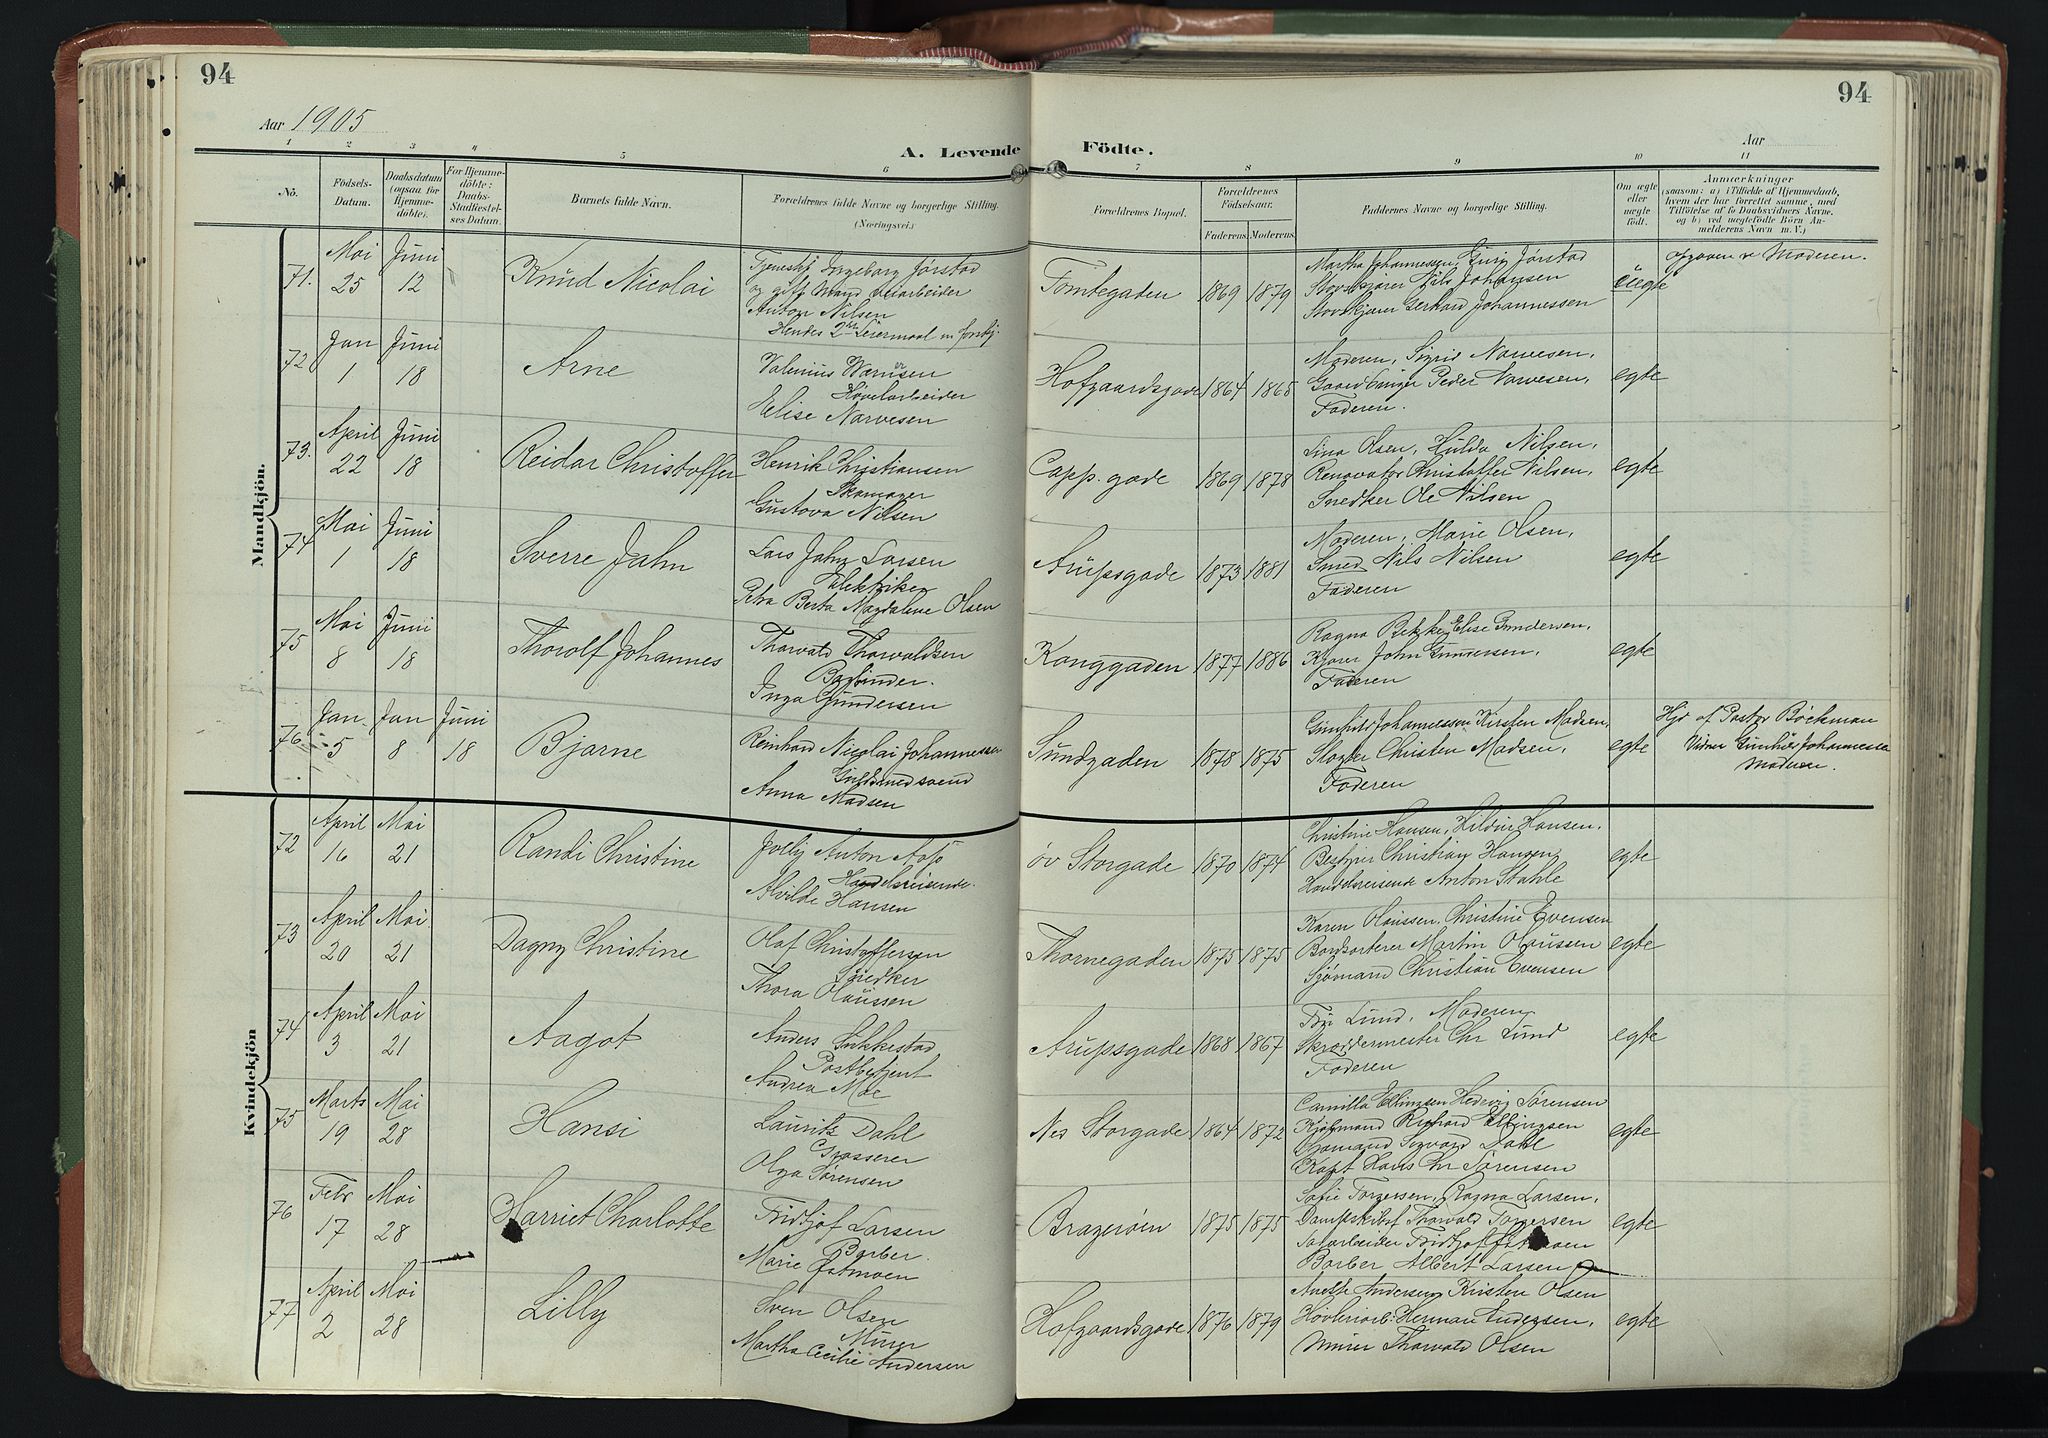 94
94
Aar 1905
Aar
A. Levende Födte.
1 2 3 4 5 6 7 8 9 10 11
Nô.
Födsels-Datum.
Daabsdatum (ogsaa for Hjemmedöbte).
For Hjemmedöbte: Daabs-Stadfæstelses Datum.
Barnets fulde Navn.
Forældrenes fulde Navne og borgerlige Stilling.
(Næringsvei.)
Forældrenes Bopæl.
Forældrenes Födselsaar.
Faderens. Moderens.
Faddernes Navne og borgerlige Stilling.
Om ægte eller uægte födt.
Anmærkninger
(saasom: a) i Tilfælde af Hjemmedaab, hvem der har forrettet samme, med Tilföielse af to Daabsvidners Navne, og b) ved uægtefödte Börn Anmelderens Navn m. V.)
Mandkjön.
71. Mai 25 Juni 12 Knud Nicolai
Tjenestp Ingeborg Jørstad
og gift Mand Veiarbeider
Anton Nilsen
Hendes 2det Leiermaal m forskj.
Tomtegaden 1869 1879
Martha Johannessen, Guri Jørstad
Nils Johansen
Gerhard Johannessen
uegte
Opgaven v Moderen.
72 Jan 1 Juni 18 Arne
Valenius
Høvelarbeider
Elise Narvesen
Hofgaardsgade 1864 1865
Moderen, Sigrid Narvesen,
Gaardbruger Peder Narvesen,
Faderen.
egte
73. April 22 Juni 18 Reidar Christoffer
Henrik Christiansen
Skomager
Gustava Nilsen
Capp. gade 1869 1878
Lina Olsen, Hulda Nilsen,
Renovatør Christoffer Nilsen,
Snedker Ole Nilsen
egte
74 Mai 1 Juni 18 Sverre John
Lars John Larsen
Elektriker
Petra Berta Magdalene Olsen
Arupsgade 1873 1881
Moderen, Marie Olsen,
Smed Nils Nilsen
Faderen
egte
75 Mai 8 Juni 18 Thorolf Johannes
Thorvald Thorvaldsen
Bogbinder.
Inga Gundersen
Konggaden 1877 1886
Ragna Bekke, Elise Gundersen,
Kjører John Gundersen,
Faderen
egte
76 Jan 5 Jan 8 Juni 18 Bjarne
Reinhard Nicolai Johannessen
Guldsmedsvend
Anna Madsen
Sundgaden 1878 1875
Gunhild Johannessen Kirsten Madsen,
Slagter Christen Madsen,
Faderen
egte
Hjd af Pastor Bøckman
Vidner Gunhild Johannessen
Moderen.
Kvindekjön
72 April 16 Mai 21 Randi Christine
Jolly Anton Aass
Handelsreisende.
Alvilde Hansen
øv Storgade 1870 1874
Christine Hansen, Hildur Hansen,
Bestyrer Christian Hansen,
Handelsreisende Anton Stahle
egte
73 April 20 Mai 21 Dagny Christine
Olaf Christoffersen
Snedker
Thora Olaussen
Thornegaden 1875 1875
Karen Olaussen, Christine Evensen
Bordsorterer Martin Olaussen
Sjømand Christian Evensen
egte
74 April 3 Mai 21 Aagot
Anders Sukkestad
Postbetjent
Andrea Moe
Arupsgade 1868 1867
Lund, Moderen,
Skræddermester Chr Lund
Faderen
egte
75 Marts 19 Mai 28 Hansi
Lauritz Dahl
Grosserer
Olga Sørensen
Ned Storgade 1864 1872
Camilla Ellingsen Hedevig Sørensen
Kjøbmand Richard Ellingsen
Sjømand Sigvard Dahl
Kapt Hans Chr Sørensen
egte
76 Febr 17 Mai 28 Harriet Charlotte
Fridtjof Larsen
Barber.
Marie Østmoen
Bragerøen 1875 1875
Sofie Torgersen, Ragna Larsen,
Dampskibsf Thorvald Torgersen
Fridtjof Østmoen
Barber Albert Larsen
egte
77 April 2 Mai 28 Lilly
Sven Olsen
Murer
Martha Cecilie Andersen
Hofgaardsgade 1876 1879
Anette Andersen, Kirsten Olsen
Høvleriarb: Herman Andersen,
Murer Thorvald Olsen
egte